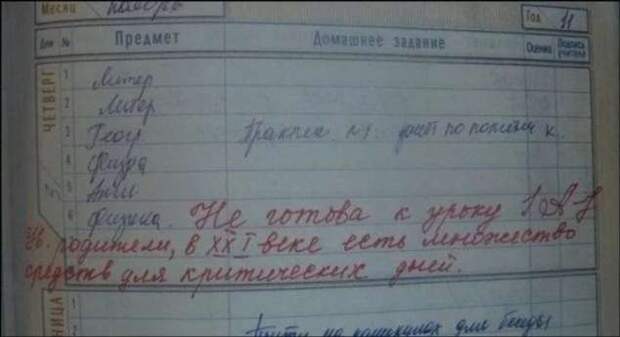 Месяц ноябрь
Год 11
Дни № Предмет Домашнее задание Оценка Подпись учителя
ЧЕТВЕРГ
1 Литер
2 Литер
3 Геогр Практич №1
4 Физра
5 Англ
6 Физика. Не готова к уроку
Ув. родители, в XXI веке есть множество
средств для критических дней.
1
2
на каникулах для беседы